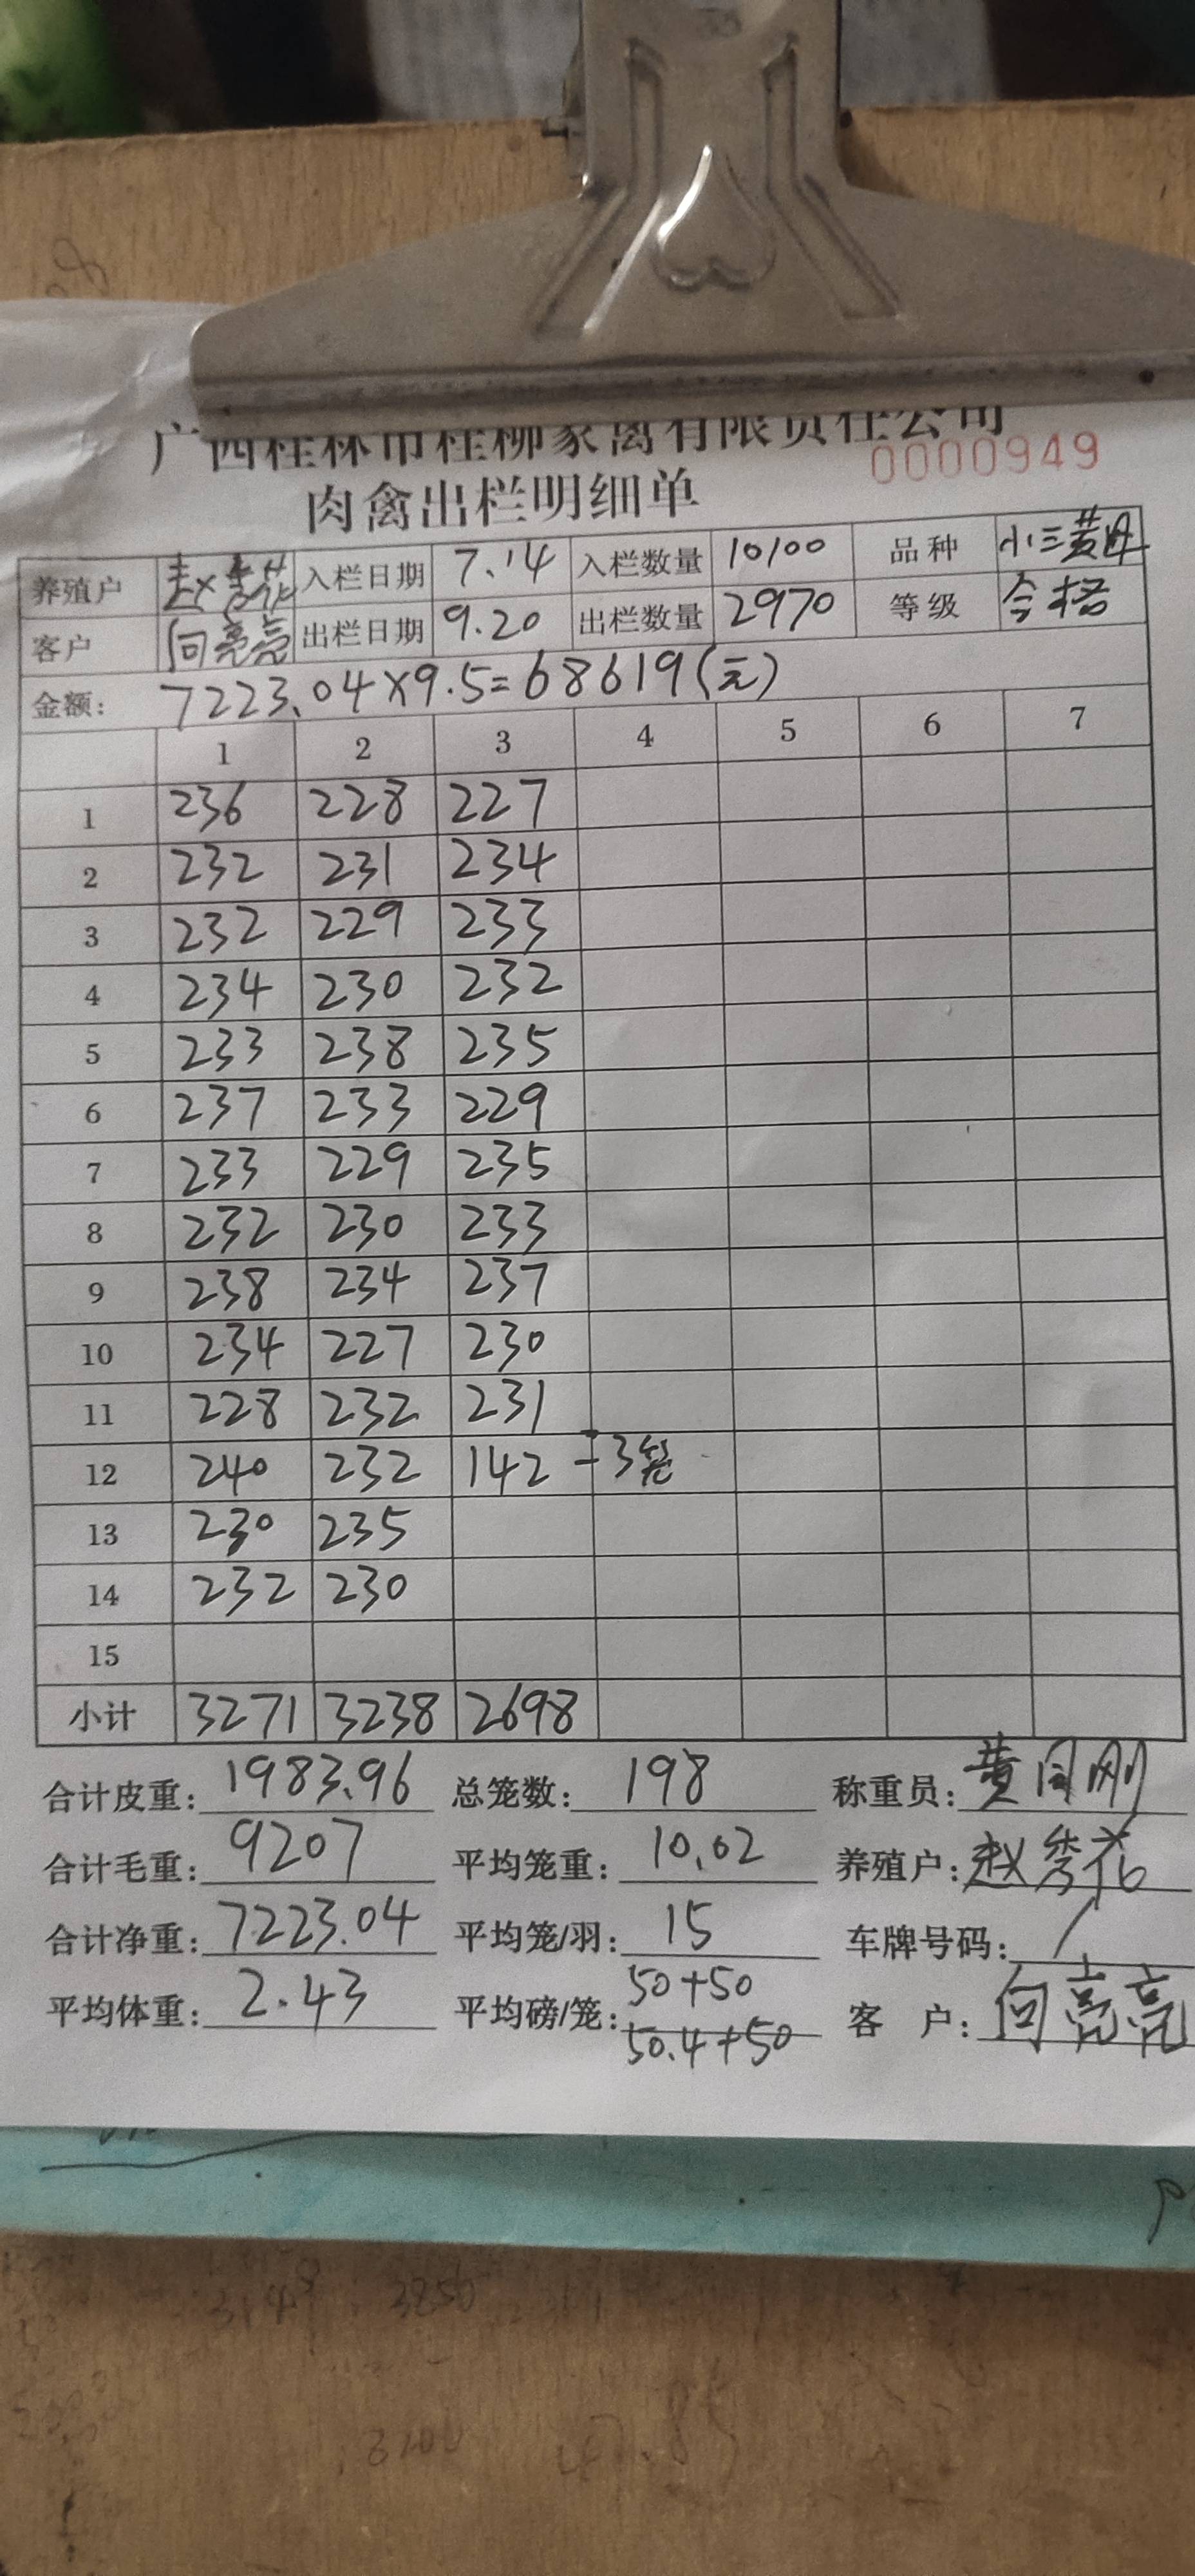 广西桂林市桂柳家禽有限责任公司
0000949
肉禽出栏明细单
养殖户 赵秀花 入栏日期 7.14 入栏数量 10100 品种 小三黄母
客户 向亮亮 出栏日期 9.20 出栏数量 2970 等级 合格
金额: 7223.04×9.5=68619(元)
1 2 3 4 5 6 7
1 236 228 227
2 232 231 234
3 232 229 233
4 234 230 232
5 233 238 235
6 237 233 229
7 233 229 235
8 232 230 233
9 238 234 237
10 234 227 230
11 228 232 231
12 240 232 142 -3笼
13 230 235
14 232 230
15
小计 3271 3238 2698
合计皮重: 1983.96 总笼数: 198 称重员: 黄同刚
合计毛重: 9207 平均笼重: 10.02 养殖户: 赵秀花
合计净重: 7223.04 平均笼/羽: 15 车牌号码: /
平均体重: 2.43 平均磅/笼: 50+50 客 户: 向亮亮
50.4+50